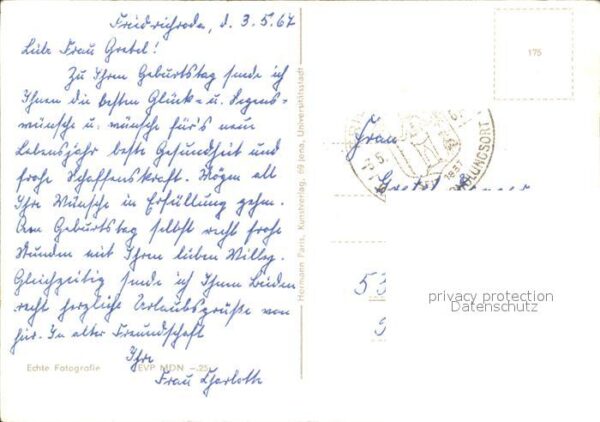 Friedrichroda, d. 3.5.67
Liebe Frau Gretel!
Zu Ihrem Geburtstag sende ich
Ihnen die besten Glück- u. Segens-
wünsche u. wünsche für's neue
Lebensjahr beste Gesundheit und
frohe Schaffenskraft. Mögen all
Ihre Wünsche in Erfüllung gehen.
Am Geburtstag selbst recht frohe
Stunden mit Ihrem lieben Willy.
Gleichzeitig sende ich Ihnen Beiden
recht herzliche Urlaubsgrüße von
hier. In alter Freundschaft
Ihre
Frau Charlotte
Echte Fotografie EVP MDN -.25
Hermann Paris, Kunstverlag, 69 Jena, Universitätsstadt
175
Frau
Gretel
53
privacy protection
Datenschutz